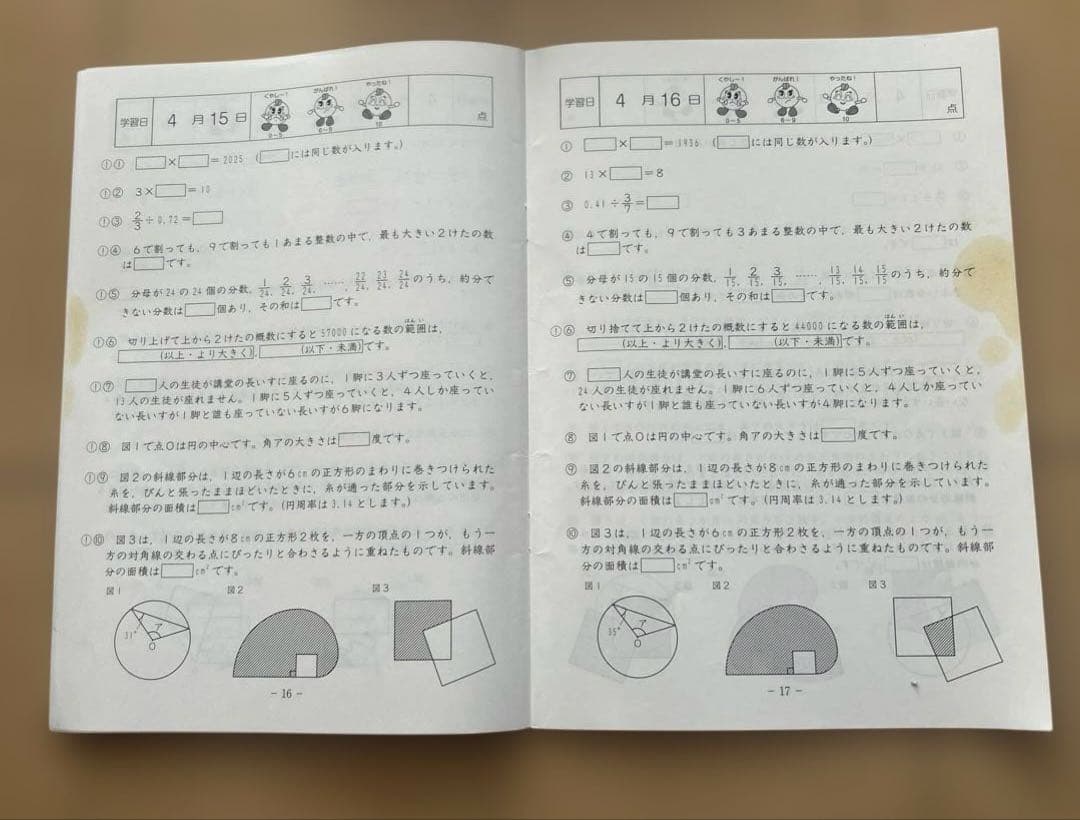 学習日 4 月 15 日 くやし〜! 0〜5 がんばれ! 6〜9 やったね! 10 点
①① □×□=2025 (□には同じ数が入ります。)
①② 3×□=10
①③ 2/3÷0.72=□
①④ 6で割っても、9で割っても1あまる整数の中で、最も大きい2けたの数
は□です。
①⑤ 分母が24の24個の分数、1/24、2/24、3/24、……、22/24、23/24、24/24のうち、約分で
きない分数は□個あり、その和は□です。
①⑥ 切り上げて上から2けたの概数にすると57000になる数の範囲は、
はんい
□(以上・より大きく)、□(以下・未満)です。
①⑦ □人の生徒が講堂の長いすに座るのに、1脚に3人ずつ座っていくと、
13人の生徒が座れません。1脚に5人ずつ座っていくと、4人しか座ってい
ない長いすが1脚と誰も座っていない長いすが6脚になります。
①⑧ 図1で点Oは円の中心です。角アの大きさは□度です。
①⑨ 図2の斜線部分は、1辺の長さが6cmの正方形のまわりに巻きつけられた
糸を、ぴんと張ったままほどいたときに、糸が通った部分を示しています。
斜線部分の面積は□cm²です。(円周率は3.14とします。)
①⑩ 図3は、1辺の長さが8cmの正方形2枚を、一方の頂点の1つが、もう一
方の対角線の交わる点にぴったりと合わさるように重ねたものです。斜線部
分の面積は□cm²です。
図1 図2 図3
31° ア O
- 16 -
学習日 4 月 16 日 くやし〜! 0〜5 がんばれ! 6〜9 やったね! 10 点
① □×□=1936 (□には同じ数が入ります。)
② 13×□=8
③ 0.41÷3/7=□
④ 4で割っても、9で割っても3あまる整数の中で、最も大きい2けたの数
は□です。
⑤ 分母が15の15個の分数、1/15、2/15、3/15、……、13/15、14/15、15/15のうち、約分で
きない分数は□個あり、その和は□です。
①⑥ 切り捨てて上から2けたの概数にすると44000になる数の範囲は、
はんい
□(以上・より大きく)、□(以下・未満)です。
⑦ □人の生徒が講堂の長いすに座るのに、1脚に5人ずつ座っていくと、
24人の生徒が座れません。1脚に6人ずつ座っていくと、4人しか座ってい
ない長いすが1脚と誰も座っていない長いすが4脚になります。
⑧ 図1で点Oは円の中心です。角アの大きさは□度です。
⑨ 図2の斜線部分は、1辺の長さが8cmの正方形のまわりに巻きつけられた
糸を、ぴんと張ったままほどいたときに、糸が通った部分を示しています。
斜線部分の面積は□cm²です。(円周率は3.14とします。)
⑩ 図3は、1辺の長さが6cmの正方形2枚を、一方の頂点の1つが、もう一
方の対角線の交わる点にぴったりと合わさるように重ねたものです。斜線部
分の面積は□cm²です。
図1 図2 図3
35° ア O
- 17 -